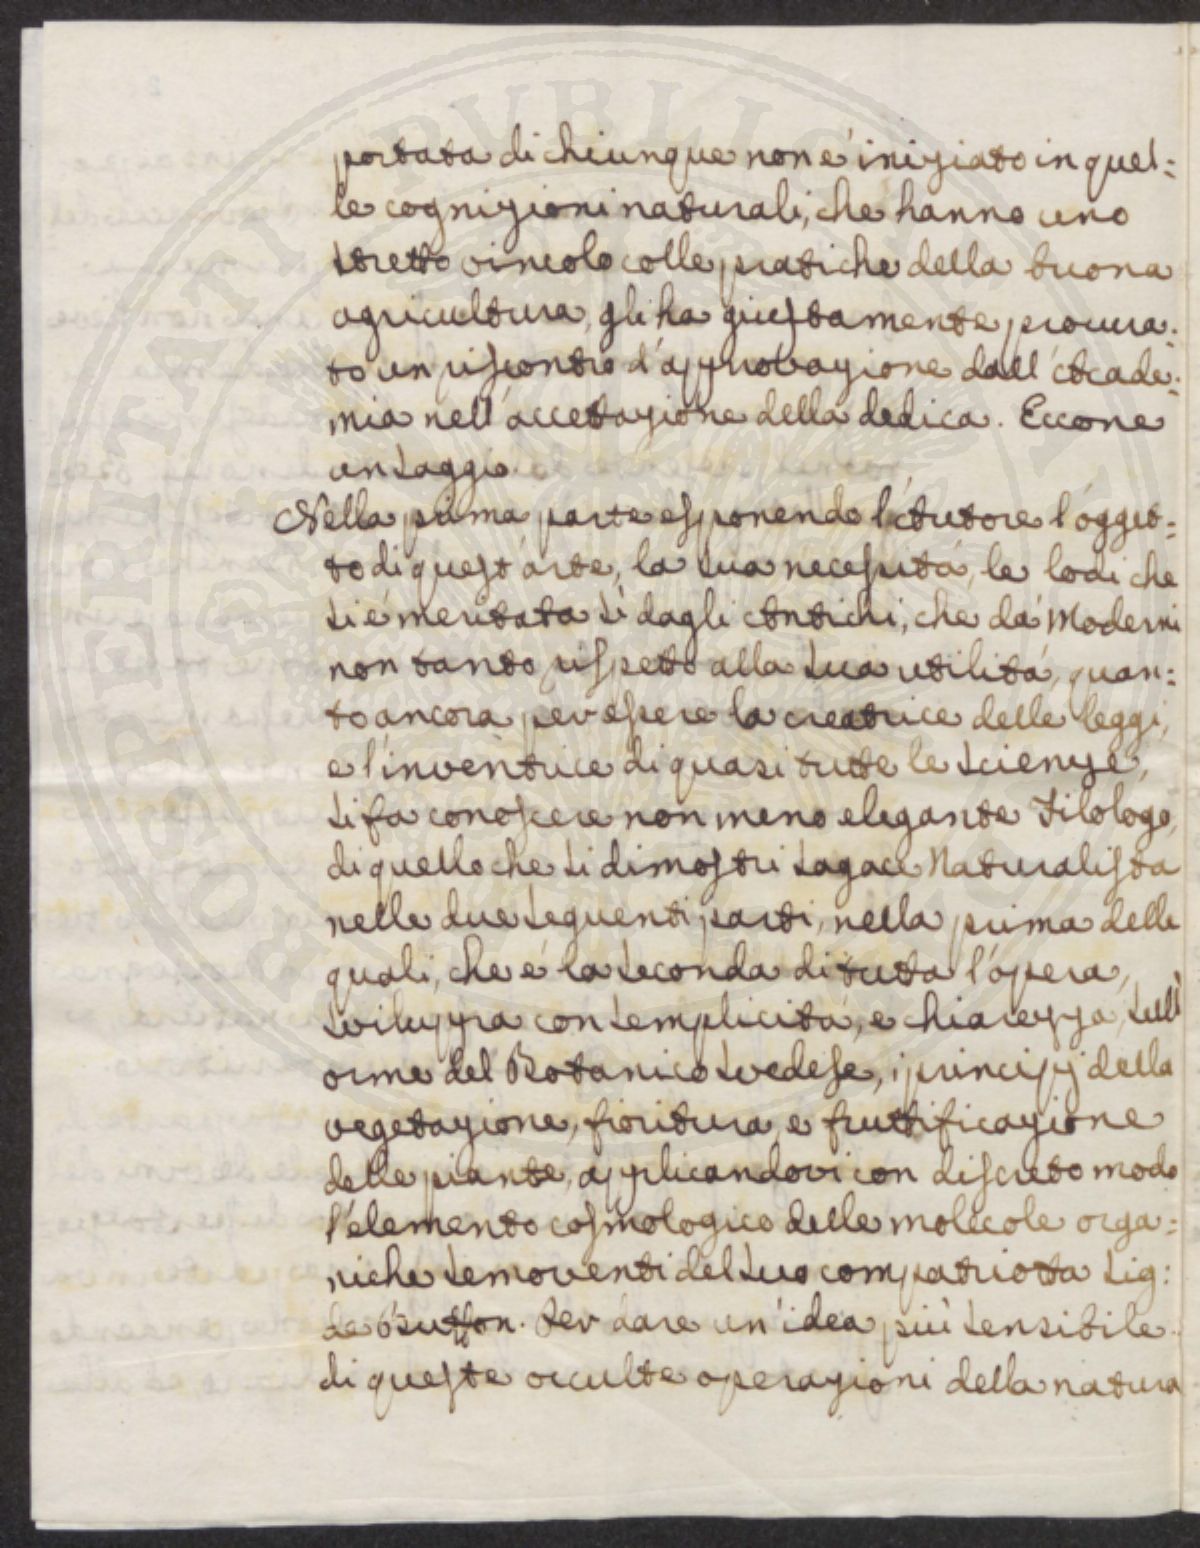 portata di chiunque non é iniziato in quel:
le cognizioni naturali, che hanno uno
stretto vincolo colle pratiche della buona
agricultura, gli ha giustamente procura:
to un riscontro d'approvazione dall'Acade:
mia nell'accettazione della dedica. Eccone
un saggio
Nella prima parte esponendo l'Autore l'ogget:
to di quest'arte, la sua necessitá, le lodi che
si é meritata sì dagli Antichi, che da' Moderni
non tanto rispetto alla sua utilitá, quan:
to ancora per essere la creatrice delle leggi,
e l'inventrice di quasi tutte le scienze,
si fa conoscere non meno elegante Filologo,
di quello che si dimostri sagace Naturalista
nelle due seguenti parti, nella prima delle
quali, che é la seconda di tutta l'opera,
sviluppa con semplicitá, e chiarezza, sull'
orme del Botanico Svedese, i principj della
vegetazione, fioritura, e fruttificazione
delle piante, applicandovi con discreto modo
l'elemento cosmologico delle molecole orga:
niche semoventi del suo compatriotta Sig:
de Buffon. Per dare un'idea più sensibile
di queste occulte operazioni della natura
PROSPERITATI PUBLICAE